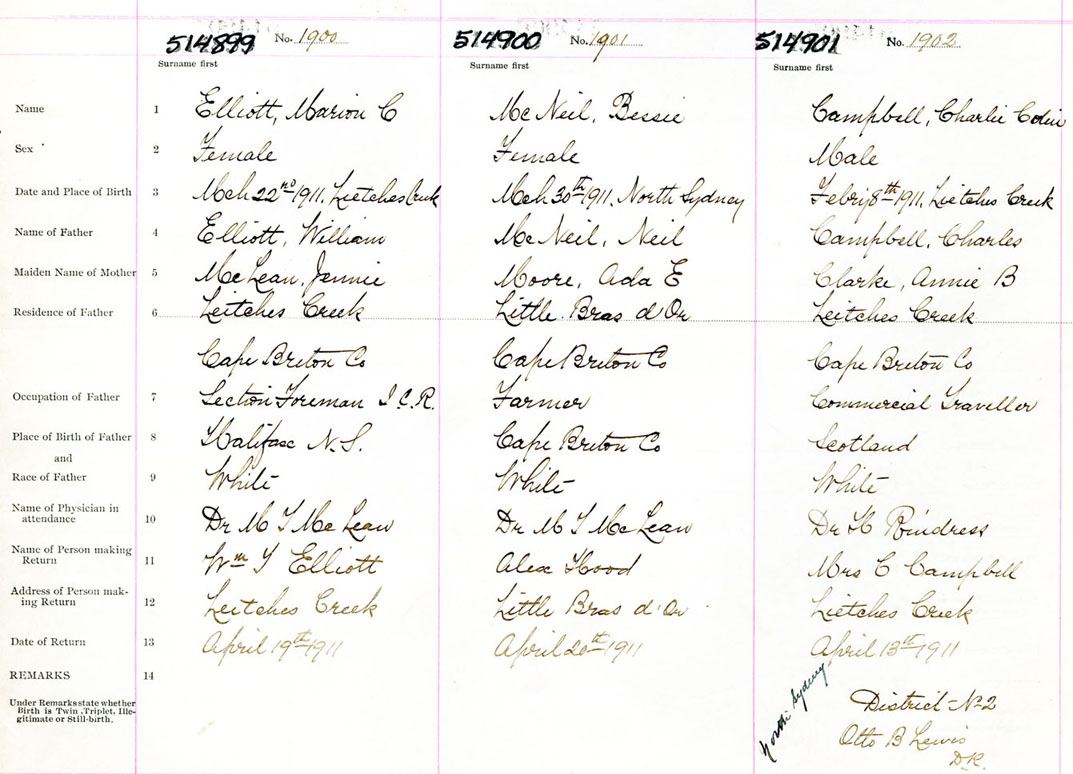 514899 No. 1900 514900 No. 1901 514901 No. 1902
Surname first Surname first Surname first
Name 1 Elliott, Marion C McNeil, Bessie Campbell, Charlie Colin
Sex 2 Female Female Male
Date and Place of Birth 3 Mch 22nd 1911, Lietches Creek Mch 30th 1911, North Sydney Febry 8th 1911, Lietches Creek
Name of Father 4 Elliott, William McNeil, Neil Campbell, Charles
Maiden Name of Mother 5 McLean, Jennie Moore, Ada E Clarke, Annie B
Residence of Father 6 Leitches Creek Little Bras d'Or Leitches Creek
Cape Breton Co Cape Breton Co Cape Breton Co
Occupation of Father 7 Section Foreman I.C.R. Farmer Commercial Traveller
Place of Birth of Father 8 Halifax N.S. Cape Breton Co Scotland
and
Race of Father 9 White White White
Name of Physician in
attendance 10 Dr M T McLean Dr M T McLean Dr H
Name of Person making
Return 11 Wm T Elliott Alex Hood Mrs C Campbell
Address of Person mak-
ing Return 12 Leitches Creek Little Bras d'Or Lietches Creek
Date of Return 13 April 19th 1911 April 20th 1911 April 13th 1911
REMARKS 14
Under Remarks state whether
Birth is Twin, Triplet, Ille-
gitimate or Still-birth.
North Sydney
District No 2
Otto B Lewis
D.R.